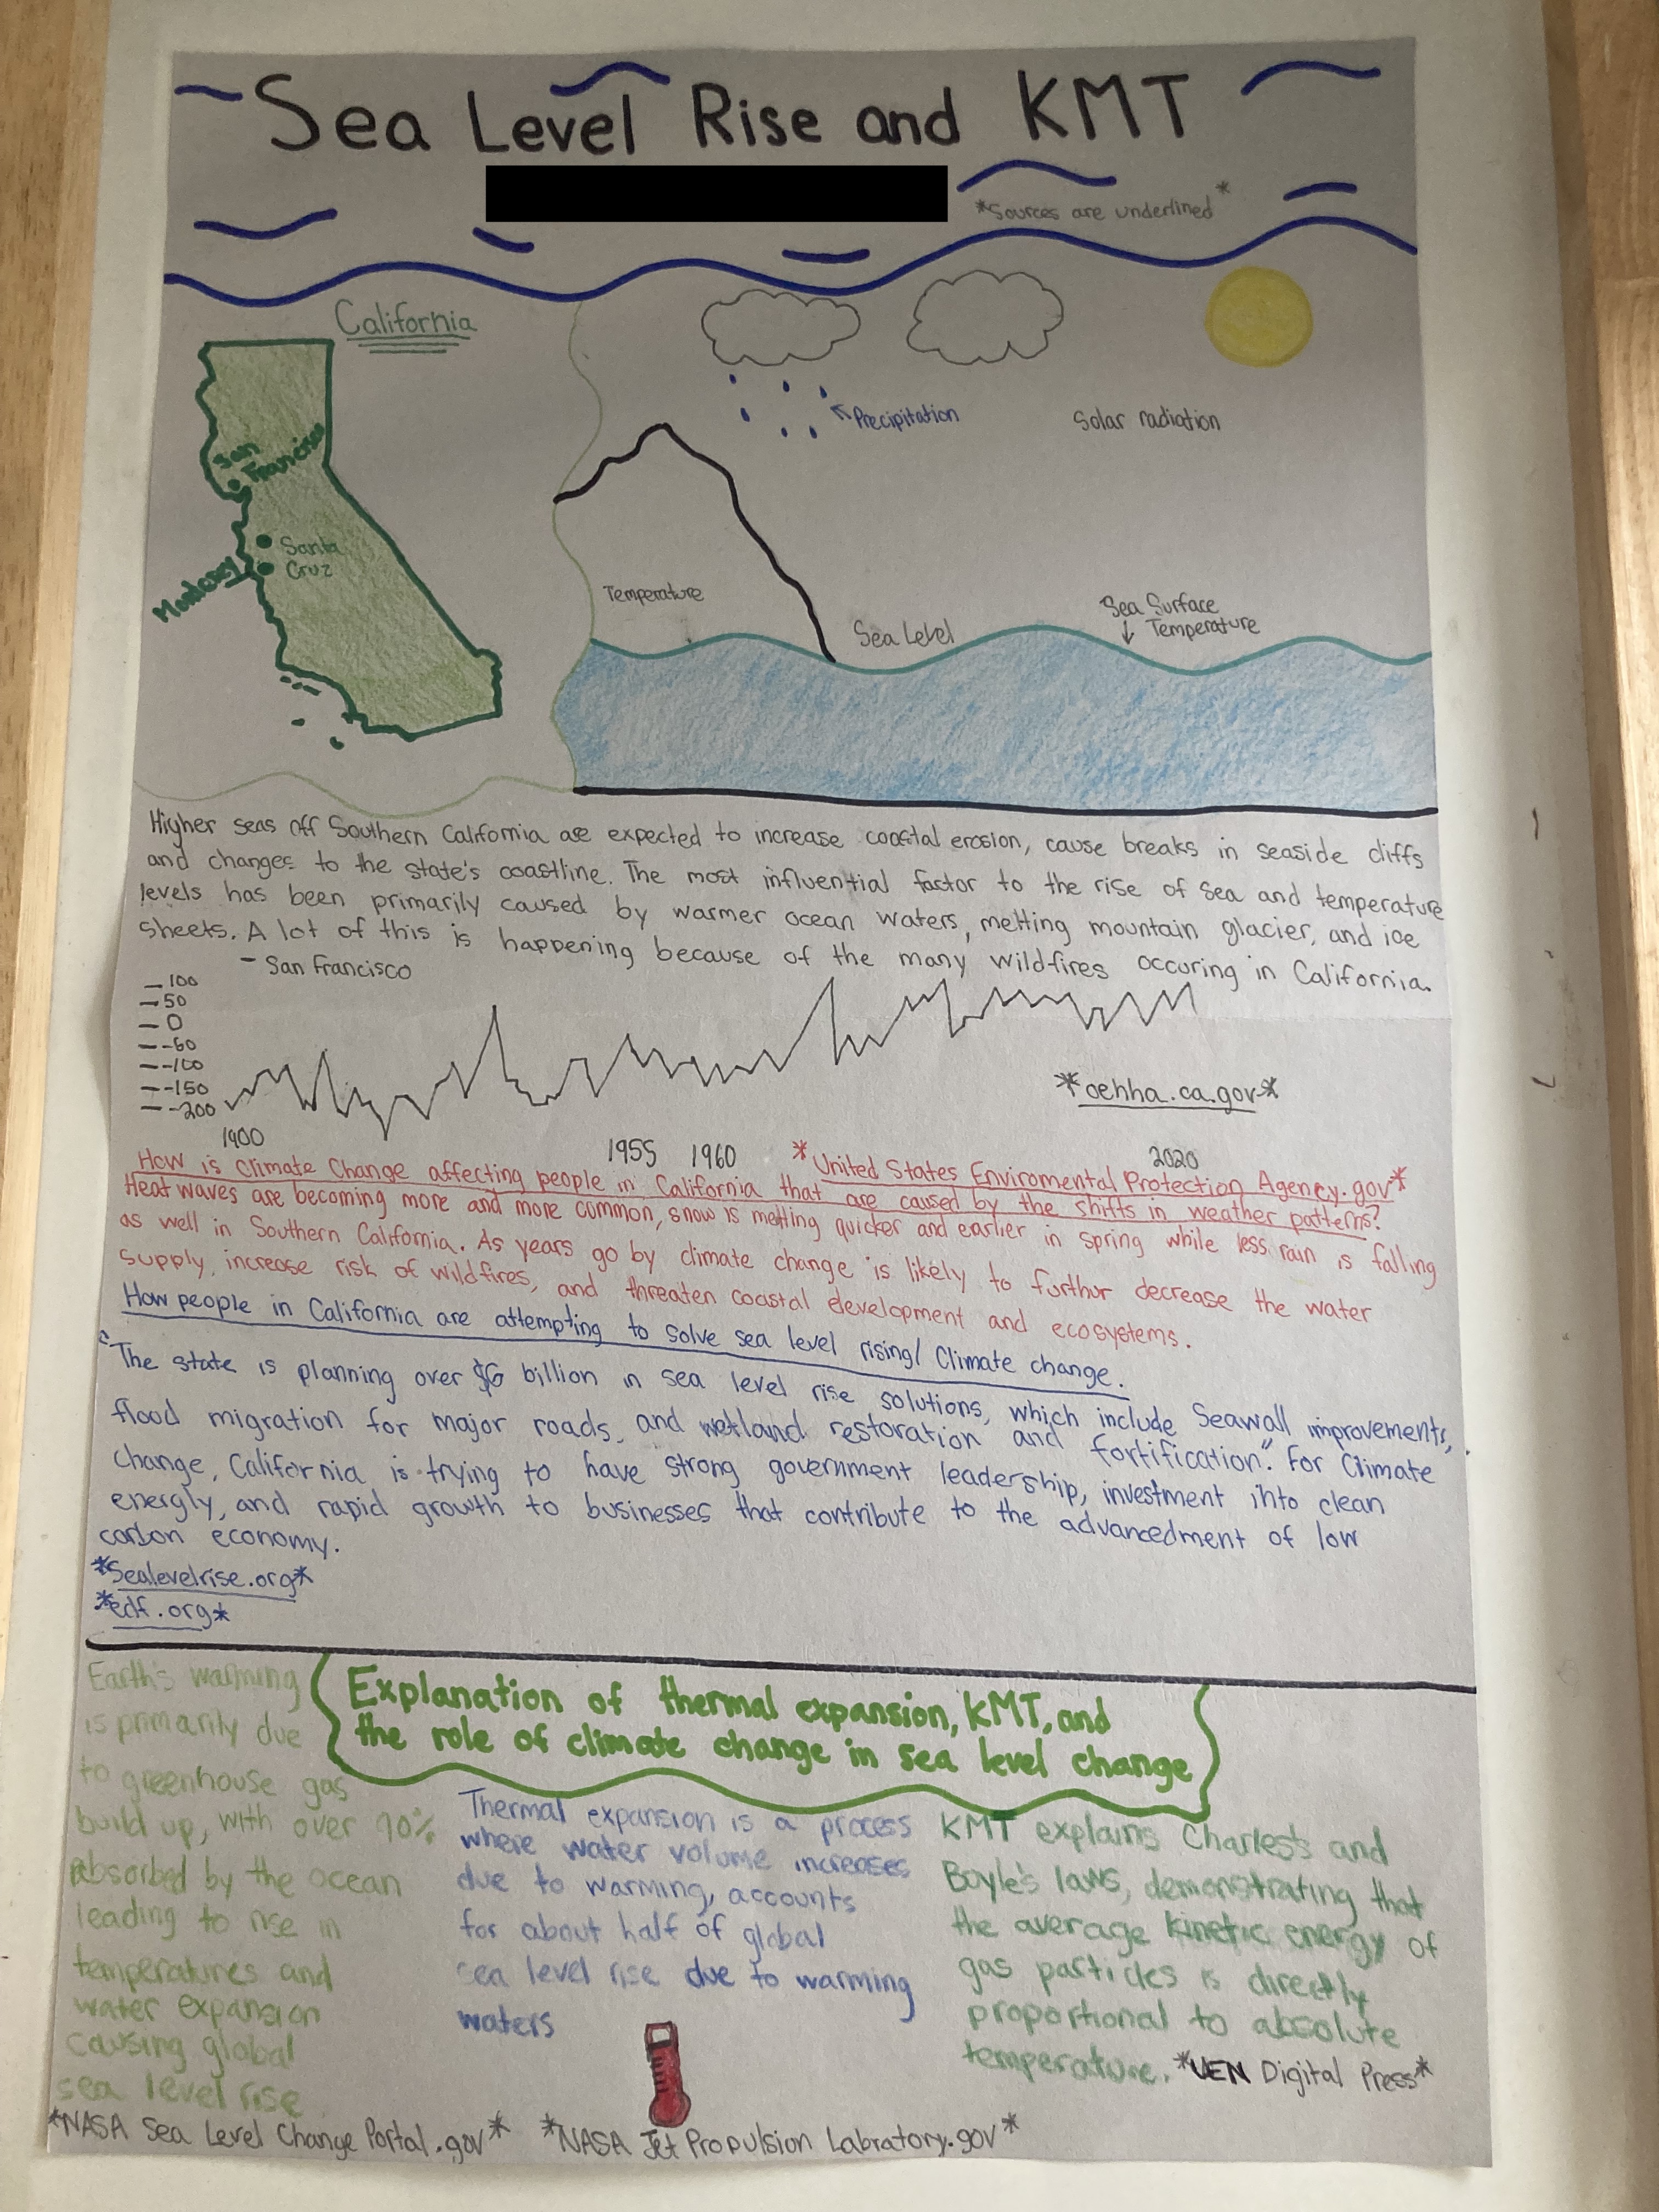 Sea Level Rise and KMT
*Sources are underlined*
California
San Francisco
Santa Cruz
Monterey
Precipitation
Solar radiation
Temperature
Sea Level
Sea Surface
Temperature
Higher seas off Southern California are expected to increase coastal erosion, cause breaks in seaside cliffs
and changes to the state's coastline. The most influential factor to the rise of sea and temperature
levels has been primarily caused by warmer ocean waters, melting mountain glacier, and ice
sheets. A lot of this is happening because of the many wildfires occuring in California.
- San Francisco
100
50
0
-60
-100
-150
-200
1900
1955
1960
2020
*oehha.ca.gov*
*United States Enviromental Protection Agency.gov*
How is Climate Change affecting people in California that are caused by the shifts in weather patterns?
Heat waves are becoming more and more common, snow is melting quicker and earlier in spring while less rain is falling
as well in Southern California. As years go by climate change is likely to furthur decrease the water
supply, increase risk of wildfires, and threaten coastal development and ecosystems.
How people in California are attempting to solve sea level rising/ Climate change.
"The state is planning over $6 billion in sea level rise solutions, which include Seawall improvements,
flood migration for major roads, and wetland restoration and fortification". For Climate
change, California is trying to have strong government leadership, investment into clean
energly, and rapid growth to businesses that contribute to the advancedment of low
carbon economy.
*Sealevelrise.org*
*edf.org*
Explanation of thermal expansion, KMT, and
the role of climate change in sea level change
Earth's warming
is primarily due
to greenhouse gas
build up, with over 90%
absorbed by the ocean
leading to rise in
temperatures and
water expansion
causing global
sea level rise
Thermal expansion is a process
where water volume increases
due to warming, accounts
for about half of global
sea level rise due to warming
waters
KMT explains Charles's and
Boyle's laws, demonstrating that
the average kinetic energy of
gas particles is directly
proportional to absolute
temperature. *UEN Digital Press*
*NASA Sea Level Change Portal.gov*
*NASA Jet Propulsion Labratory.gov*